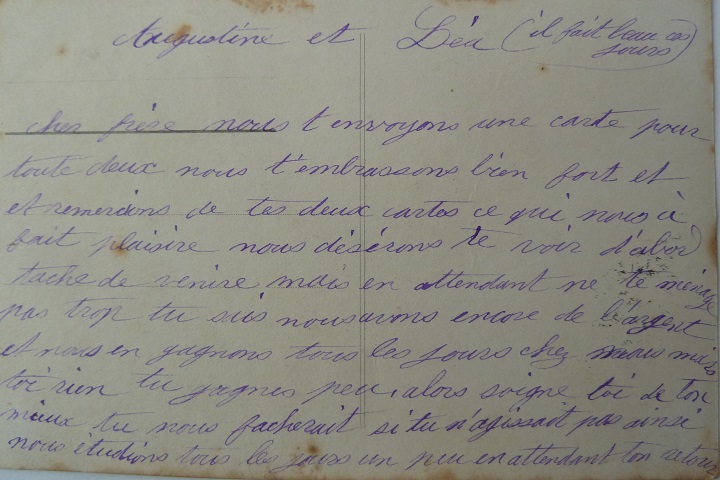 Augustine et Léa (il fait beau ces
jours)
cher frère nous t envoyons une carte pour
toute deux nous t'embrassons bien fort et
et remercions de tes deux cartes ce qui nous à
fait plaisire nous désirons te voir d'abor
tache de venire mais en attendant ne te ménage
pas trop tu sais nous avons encore de l'argent
et nous en gagnons tous les jours chez nous mais
toi rien tu gagnes peu, alors soigne toi de ton
mieux tu nous facherait si tu n'agissait pas ainsi
nous étudions tous les jours un peu en attendant ton retour